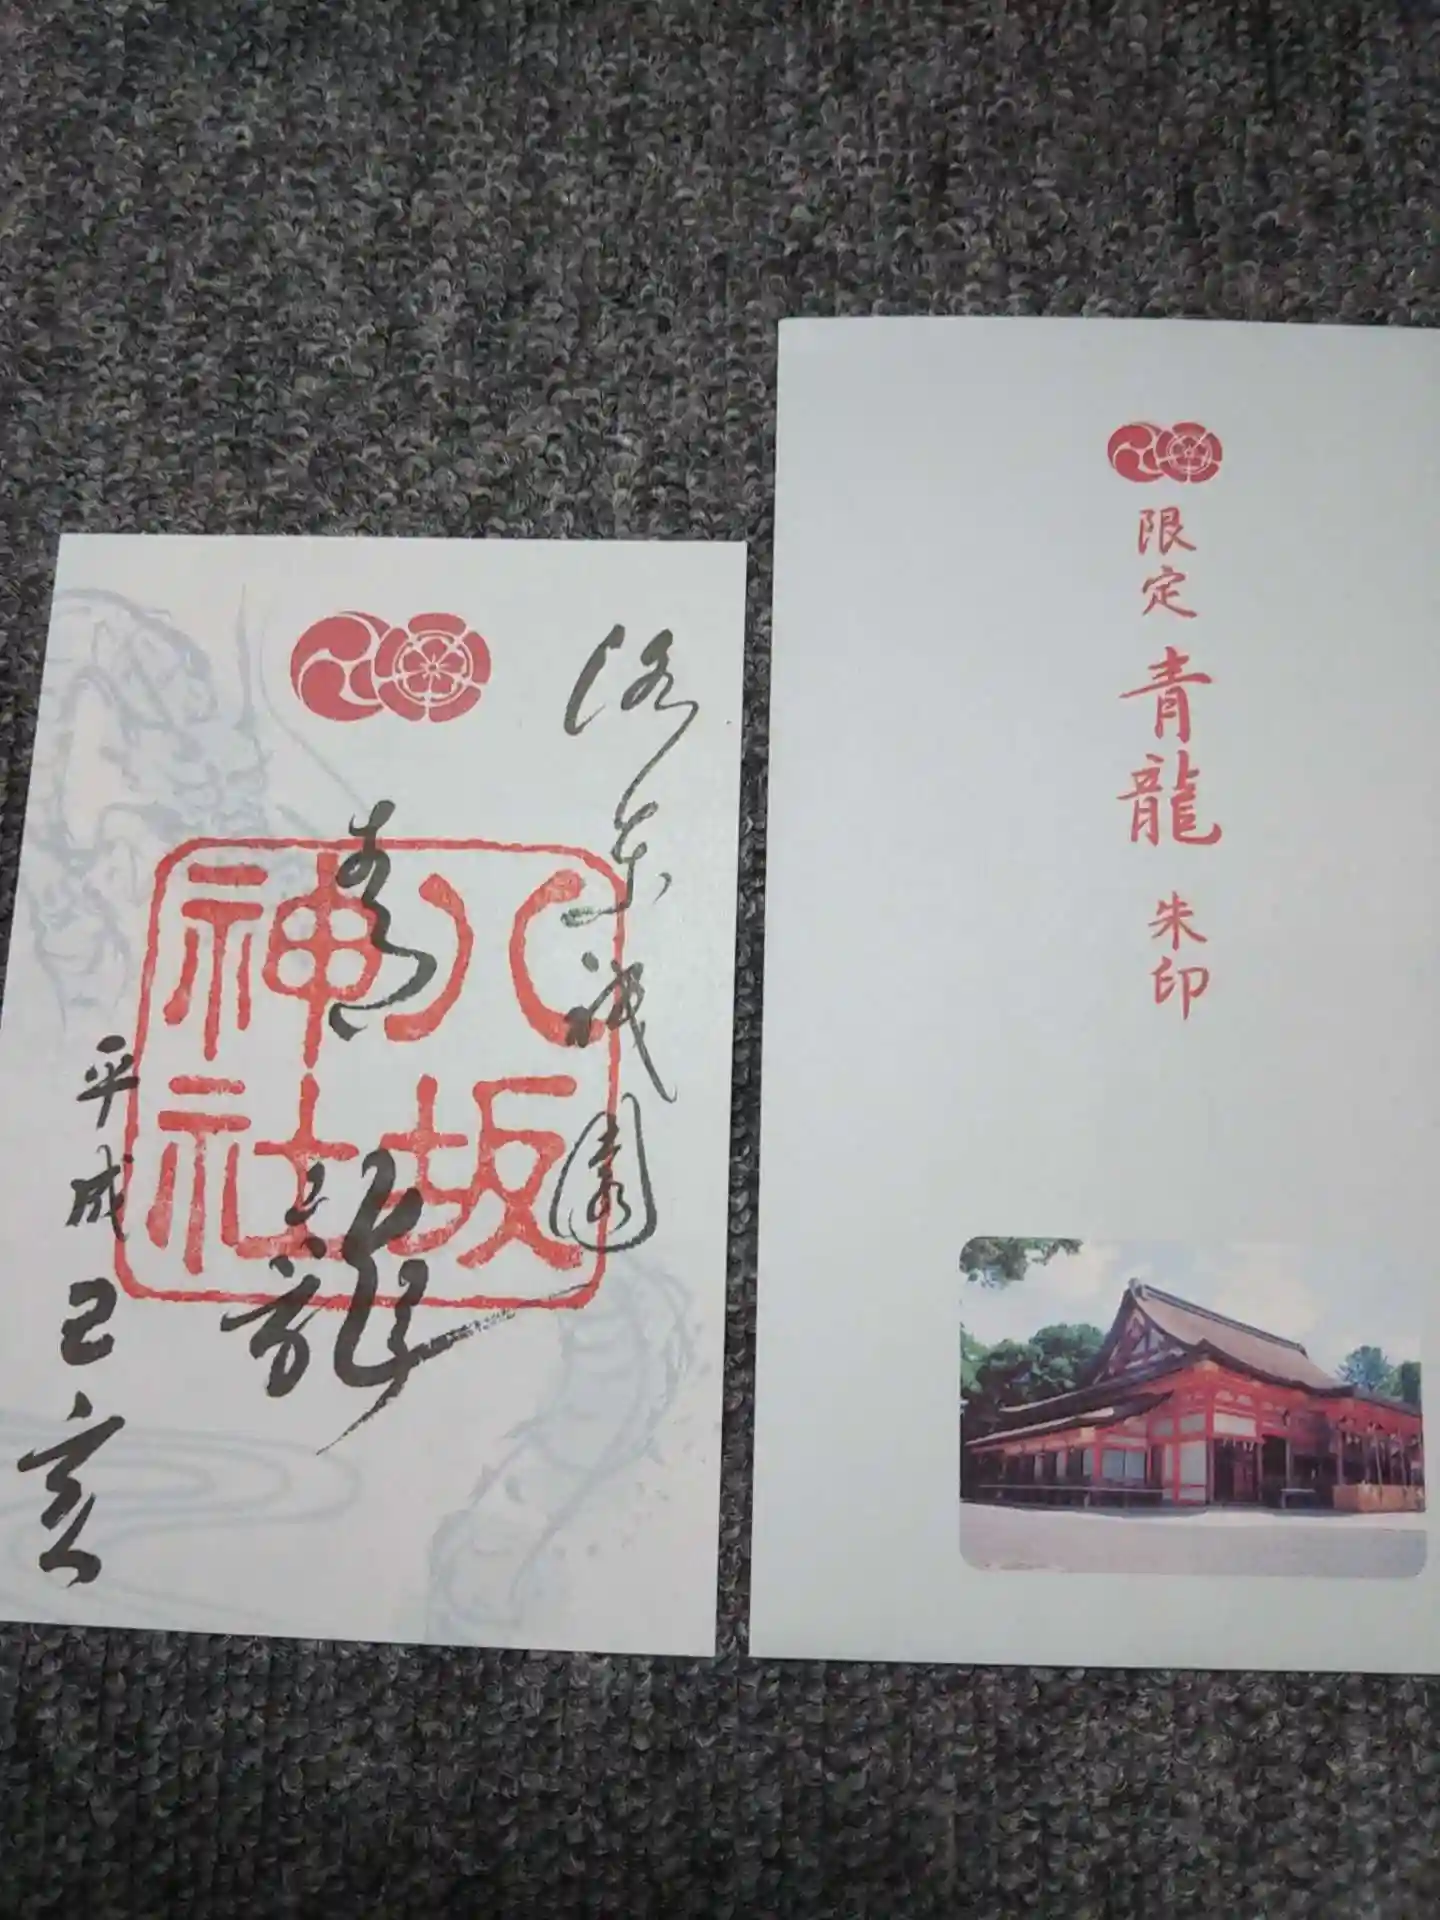 洛東祇園
青龍
八坂
神社
平成己亥
限定 青龍 朱印